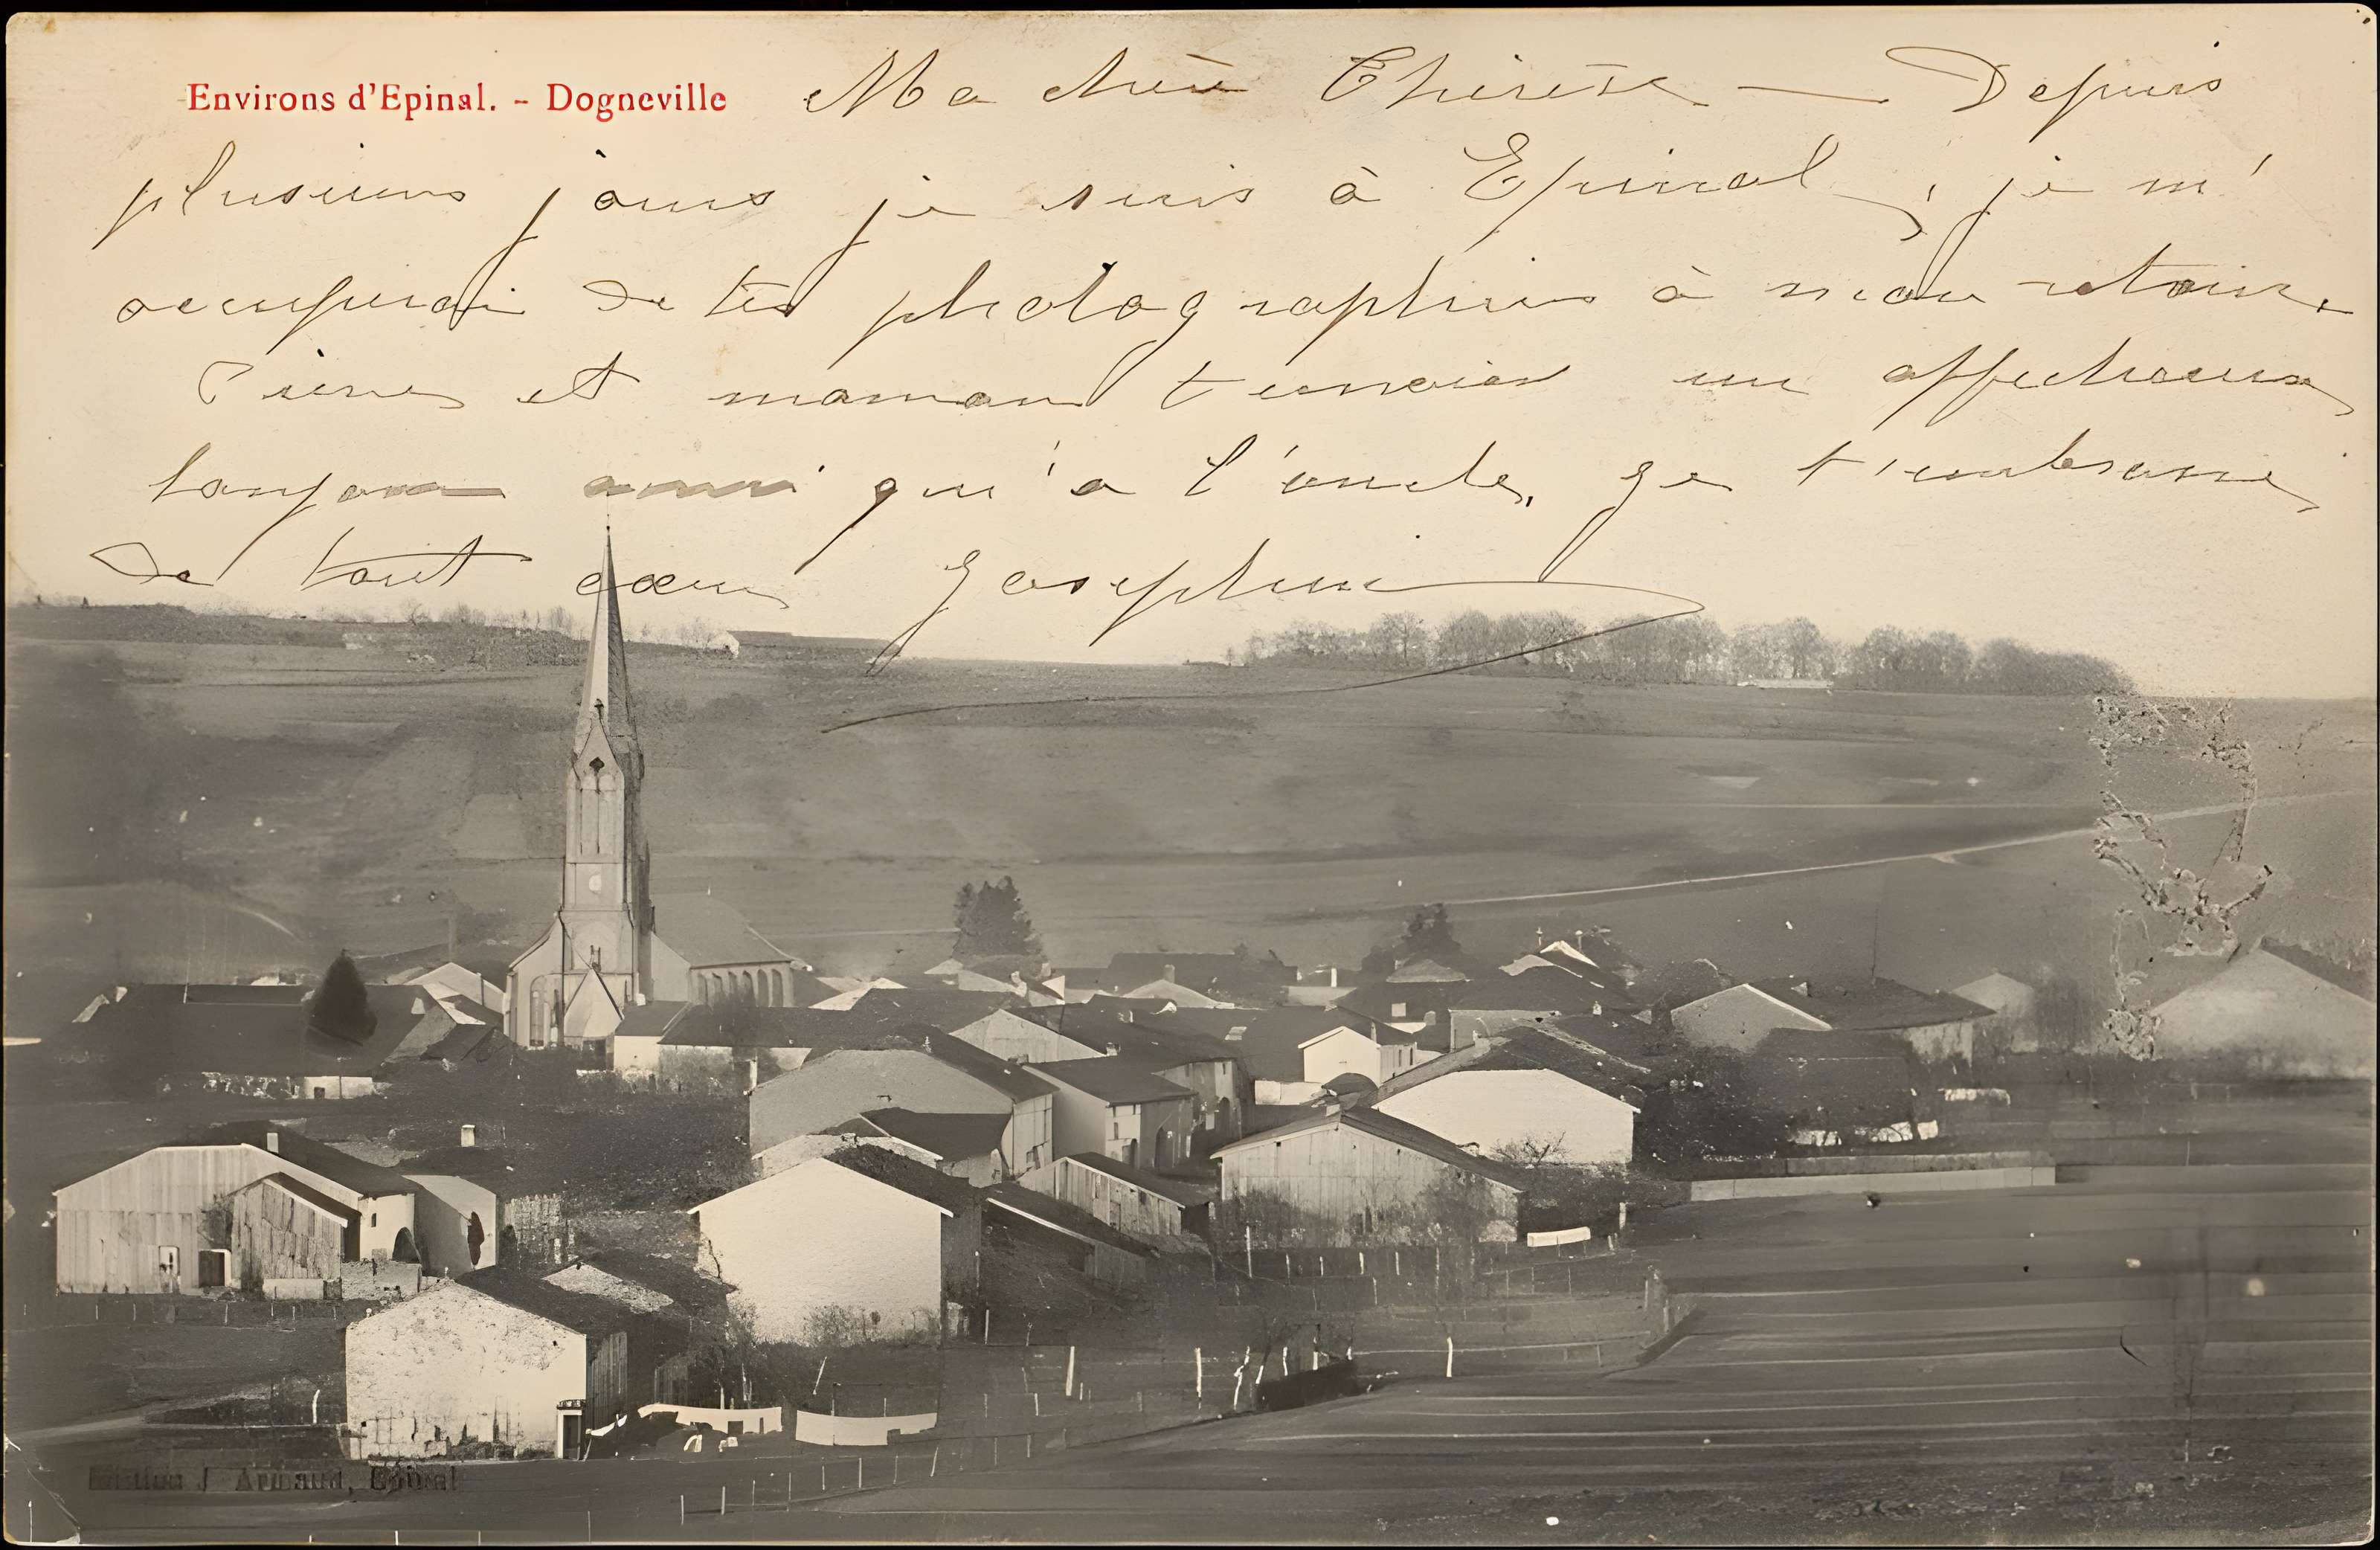 Environs d'Epinal. - Dogneville
Ma chère Thérèse — Depuis
plusieurs jours je suis à Epinal, je m'
occuperai de tes photographies à mon retour.
et maman t'envoient un affectueux
bonjour ainsi qu'à l'oncle. Je t'embrasse
de tout cœur Joséphine
Edition J Armaud, Epinal